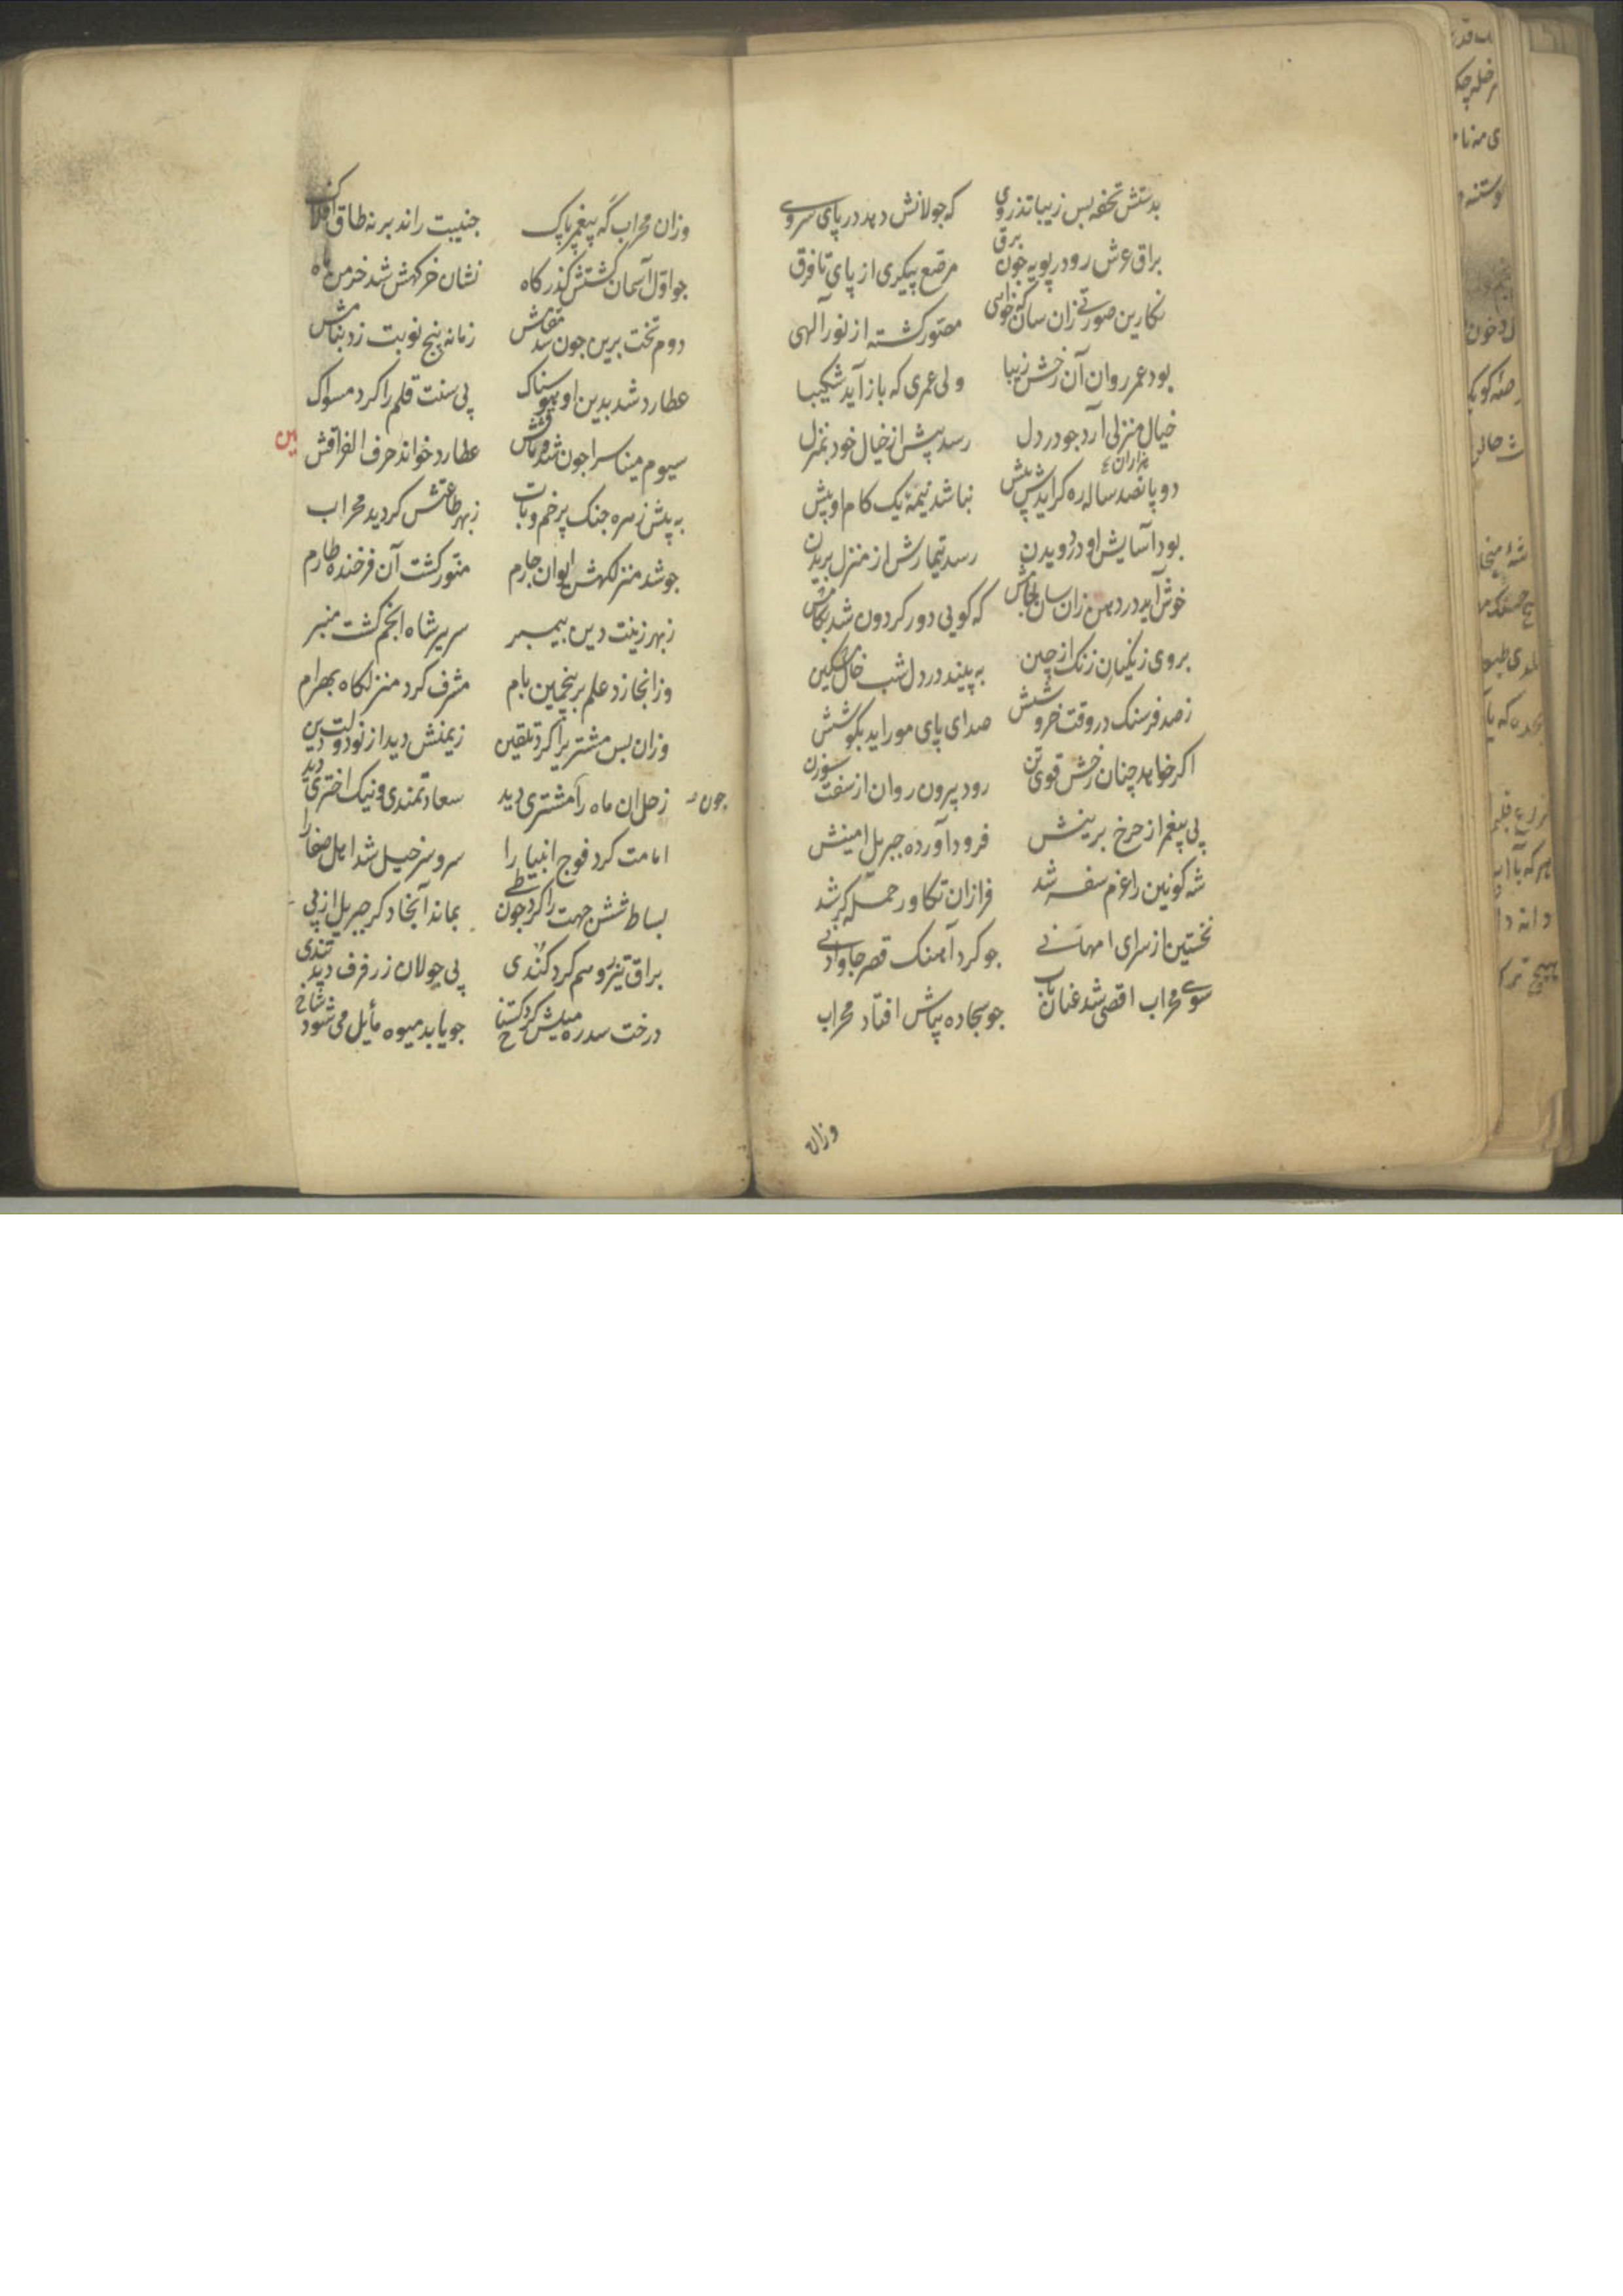 بدستش تحفه بس زیبا تذروی که جولانش دهد در پای سروی
براق عرش رو در پویه جون برق مرصع پیکری از پای تا فرق
نکارین صورتی زان سان که خواهی مصور کشته از نور آلهی
بود عمر روان آن رخش زیبا ولی عمری که باز آید شکیبا
خیال منزلی آرد جو در دل رسد پیش از خیال خود بمنزل
هزاران
دو پانصد ساله ره کر آیدش پیش نباشد نیمهٔ یک کام او بیش
بود آسایش او در دویدن رسد تیمارش از منزل بریدن
خوش آید در دهن زان سان که کویی دور کردون شد بکامش
بروی زنکیان زنک از چین به بیند در دل شب خال مشکین
ز صد فرسنک در وقت خروشش صدای پای مور اید بکوشش
اکر خواهد چنان رخش قوی تن رود بیرون روان از سفت سوزن
پی پیغمبر از جرخ برینش فرود آورده جبریل امینش
شه کونین را عزم سفر شد فراز ان تکاور حمله کر شد
نخستین از سرای امهانی جو کرد آهنک قصر جاودانی
سوی محراب اقصی شد عنان تاب جو سجاده بپاش افتاد محراب
وزان
وزان محراب که پیغمبر پاک جنیبت راند بر نه طاق افلاک
جو اول آسمان کشتش کذرکاه نشان خرکهش شد خرمن ماه
دوم تخت برین جون شد مقامش زمانه پنج نوبت زد بنامش
عطارد شد بدین او هوسناک پی سنت قلم را کرد مسواک
سیوم میناسرا جون شد وثاقش عطارد خواند حرف الفراقش
به پیش زهره جنک پر خم و تاب ز بهر طاعتش کردید محراب
جو شد منزلکهش ایوان جارم منور کشت آن فرخنده طارم
ز بهر زینت دین پیمبر سریر شاه انجم کشت منبر
وزانجا زد علم بر پنجمین بام مشرف کرد منزلکاه بهرام
وزان بس مشتریرا کرد تلقین زیمنش دید از نو دولت دین
جون
زحل ان ماه را مشتری دید سعادتمندی و نیک اختری دید
امامت کرد فوج انبیا را سر و سرخیل شد اهل صفا را
بساط شش جهت را کرد جون طی بماند آنجا دکر جبریل از پی
براق تیز رو هم کرد کندی پی جولان ز رفرف دید تندی
درخت سدره میلش کرد کستاخ جو یابد میوه مأیل می شود شاخ